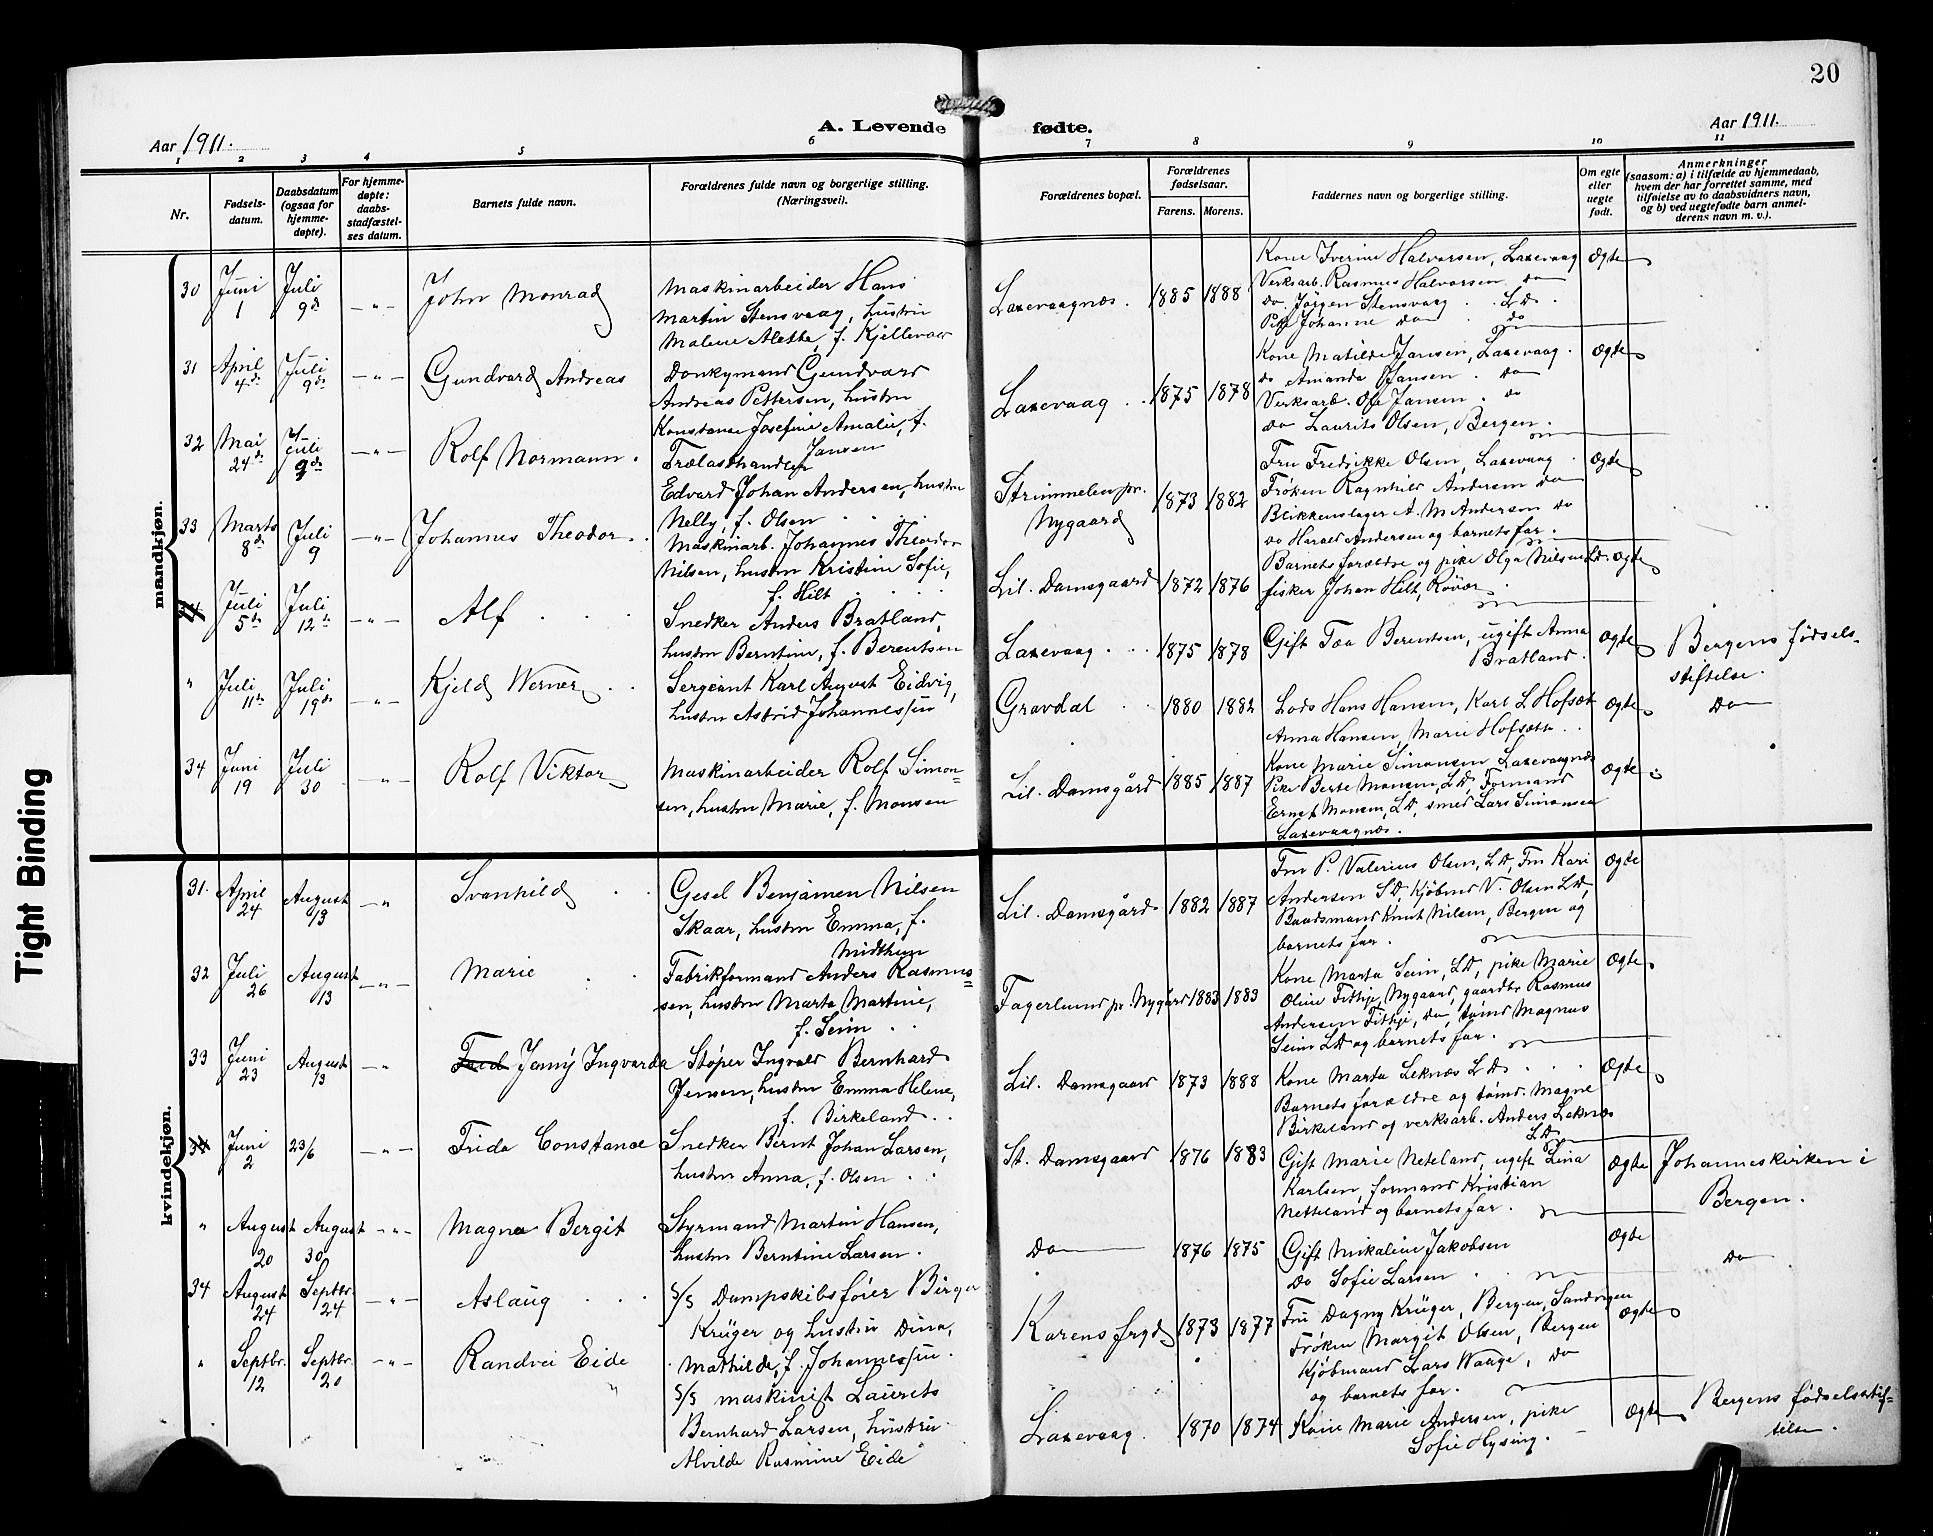 20
A. Levende fødte.
Aar 1911.
Aar 1911.
1 2 3 4 5 6 7 8 9 10 11
Nr.
Fødsels-
datum.
Daabsdatum
(ogsaa for
hjemme-
døpte).
For hjemme-
døpte:
daabs-
stadfæstel-
ses datum.
Barnets fulde navn.
Forældrenes fulde navn og borgerlige stilling.
(Næringsvei).
Forældrenes bopæl.
Forældrenes
fødselsaar.
Farens. Morens.
Faddernes navn og borgerlige stilling.
Om egte
eller
uegte
født.
Anmerkninger
(saasom: a) i tilfælde av hjemmedaab,
hvem der har forrettet samme, med
tilføielse av to daabsvidners navn,
og b) ved uegtefødte barn anmel-
derens navn m. v.).
mandkjøn.
30 Juni 1 Juli 9de - " - John Monrad
Maskinarbeider Hans
Martin Stensvaag, hustru
Malene Alette, f. Kjellevær
Laxevaagnæs. 1885 1888
Kone Iverine Halvorsen, Laxevaag
Verksarb. Rasmus Halvorsen do
do Jørgen Stensvaag . . L.D.
Pige Johanne do . do
Ægte
31 April 4de Juli 9de - " - Gundvard Andreas
Donkymand Gundvard
Andreas Pettersen, hustru
Konstanse Josefine Amalie, f.
Jansen
Laxevaag . . 1875 1878
Kone Matilde Jansen, Laxevaag.
do Amanda Jansen . do
Verksarb. Ole Jansen . do
do Laurits Olsen, Bergen.
Ægte
32 Mai 24de Juli 9de - " - Rolf Normann.
Trælasthandler
Edvard Johan Andersen, hustru
Nelly, f. Olsen
Strimmelen pr.
Nygaard 1873 1882
Fru Fredrikke Olsen, Laxevaag
Frøken Ragnhild Andersen do
Blikkenslager A. M. Andersen do
do Harald Andersen og barnets far.
Ægte
33 Marts 8de Juli 9 - " - Johannes Theodor
Maskinarb. Johannes Theodor
Nilsen, hustru Kristine Sofie,
f. Hilt
Lil. Damsgaard 1872 1876
Barnets forældre og pike Olga Nilsen L.D.
fisker Johan Hilt, Røvær
Ægte
34 Juli 5de Juli 12te - " - Alf
Snedker Anders Bratland,
hustru Berntine, f. Berentsen
Laxevaag . . . 1875 1878
Gift Taa Berentsen, ugift Anna
Bratland.
Ægte
Bergens fødsels-
stiftelse.
" Juli 11te Juli 19de - " - Kjeld Werner
Sergeant Karl August Eidvig,
hustru Astrid Johannessen
Gravdal . . 1880 1882
Lods Hans Hansen, Karl L Hofsæt
Anna Hansen, Marie Hofsæth . .
Ægte
Do
34 Juni 19 Juli 30 - " - Rolf Viktor
Maskinarbeider Rolf Simon=
sen, hustru Marie, f. Monsen
Lil. Damsgård 1885 1887
Kone Marie Simonsen Laxevaagnæs
Pike Berte Monsen, L.D, Formand
Ernst Monsen, L.D, smed Lars Simonsen
Laxevaagnæs.
Ægte
kvindekjøn.
31. April 24 August 13 - " Svanhild
Gesel Benjamen Nilsen
Skaar, hustru Emma, f.
Midthun
Lil. Damsgård. 1882 1887
Fru P. Valerius Olsen, L.D, Fru Kari
Andersen S.D, Kjøbmd V. Olsen L.D,
Baadsmand Knut Nilsen, Bergen og
barnets far.
Ægte
32 Juli 26 August 13 - " - Marie
Fabrikformand Anders Rasmus=
sen, hustru Marta Martine,
f. Seim . .
Fagerlund pr. Nygård 1883 1883
Kone Marta Seim, L.D, pike Marie
Oline Fithje, Nygaard, gaardbr Rasmus
Andersen Fithje, do, tømd Magnus
Seim L.D og barnets far.
Ægte
33 Juni 23 August 13 - " Jenny Ingvarda
Støper Ingvald Bernhard
Jensen, hustru Emma Helene,
f. Birkeland . .
Lil. Damsgaard 1873 1888
Kone Marta Leknæs L.D
Barnets forældre og tømd. Magne
Birkeland og verksarb. Anders Leknæs
L.D.
Ægte
34 Juni 2 23/6 - " - Frida Constance
Snedker Bernt Johan Larsen,
hustru Anna, f. Olsen . .
St. Damsgaard 1876 1883
Gift Marie Neteland, ugift Lina
Karlsen, formand Kristian
Netteland og barnets far.
Ægte
Johanneskirken i
Bergen.
" August 20 August 30 - " - Magna Bergit
Styrmand Martin Hansen,
hustru Berntine Larsen.
Do 1876 1875
Gift Nikaline Jakobsen
Do Sofie Larsen
Ægte
Do
34 August 24 Septbr. 24 - " - Aslaug
S/S Dampskibsfører Birger
Krüger og hustru Dina,
Mathilde, f. Johannessen.
Karens fryd 1873 1877
Fru Dagny Krüger, Bergen, Sandvigen
Frøken Margit Olsen, Bergen
Kjøbmand Lars Waage, do
og barnets far.
Ægte
" Septbr. 12 Septbr. 20 - " - Randvei Eide
S/S maskinist Laurits
Bernhard Larsen, hustru
Alvilde Rasmine Eide
Laxevaag. 1870 1874
Kone Marie Andersen, pike
Sofie Hysing.
Ægte
Bergens fødselsstif-
telse.
Tight Binding